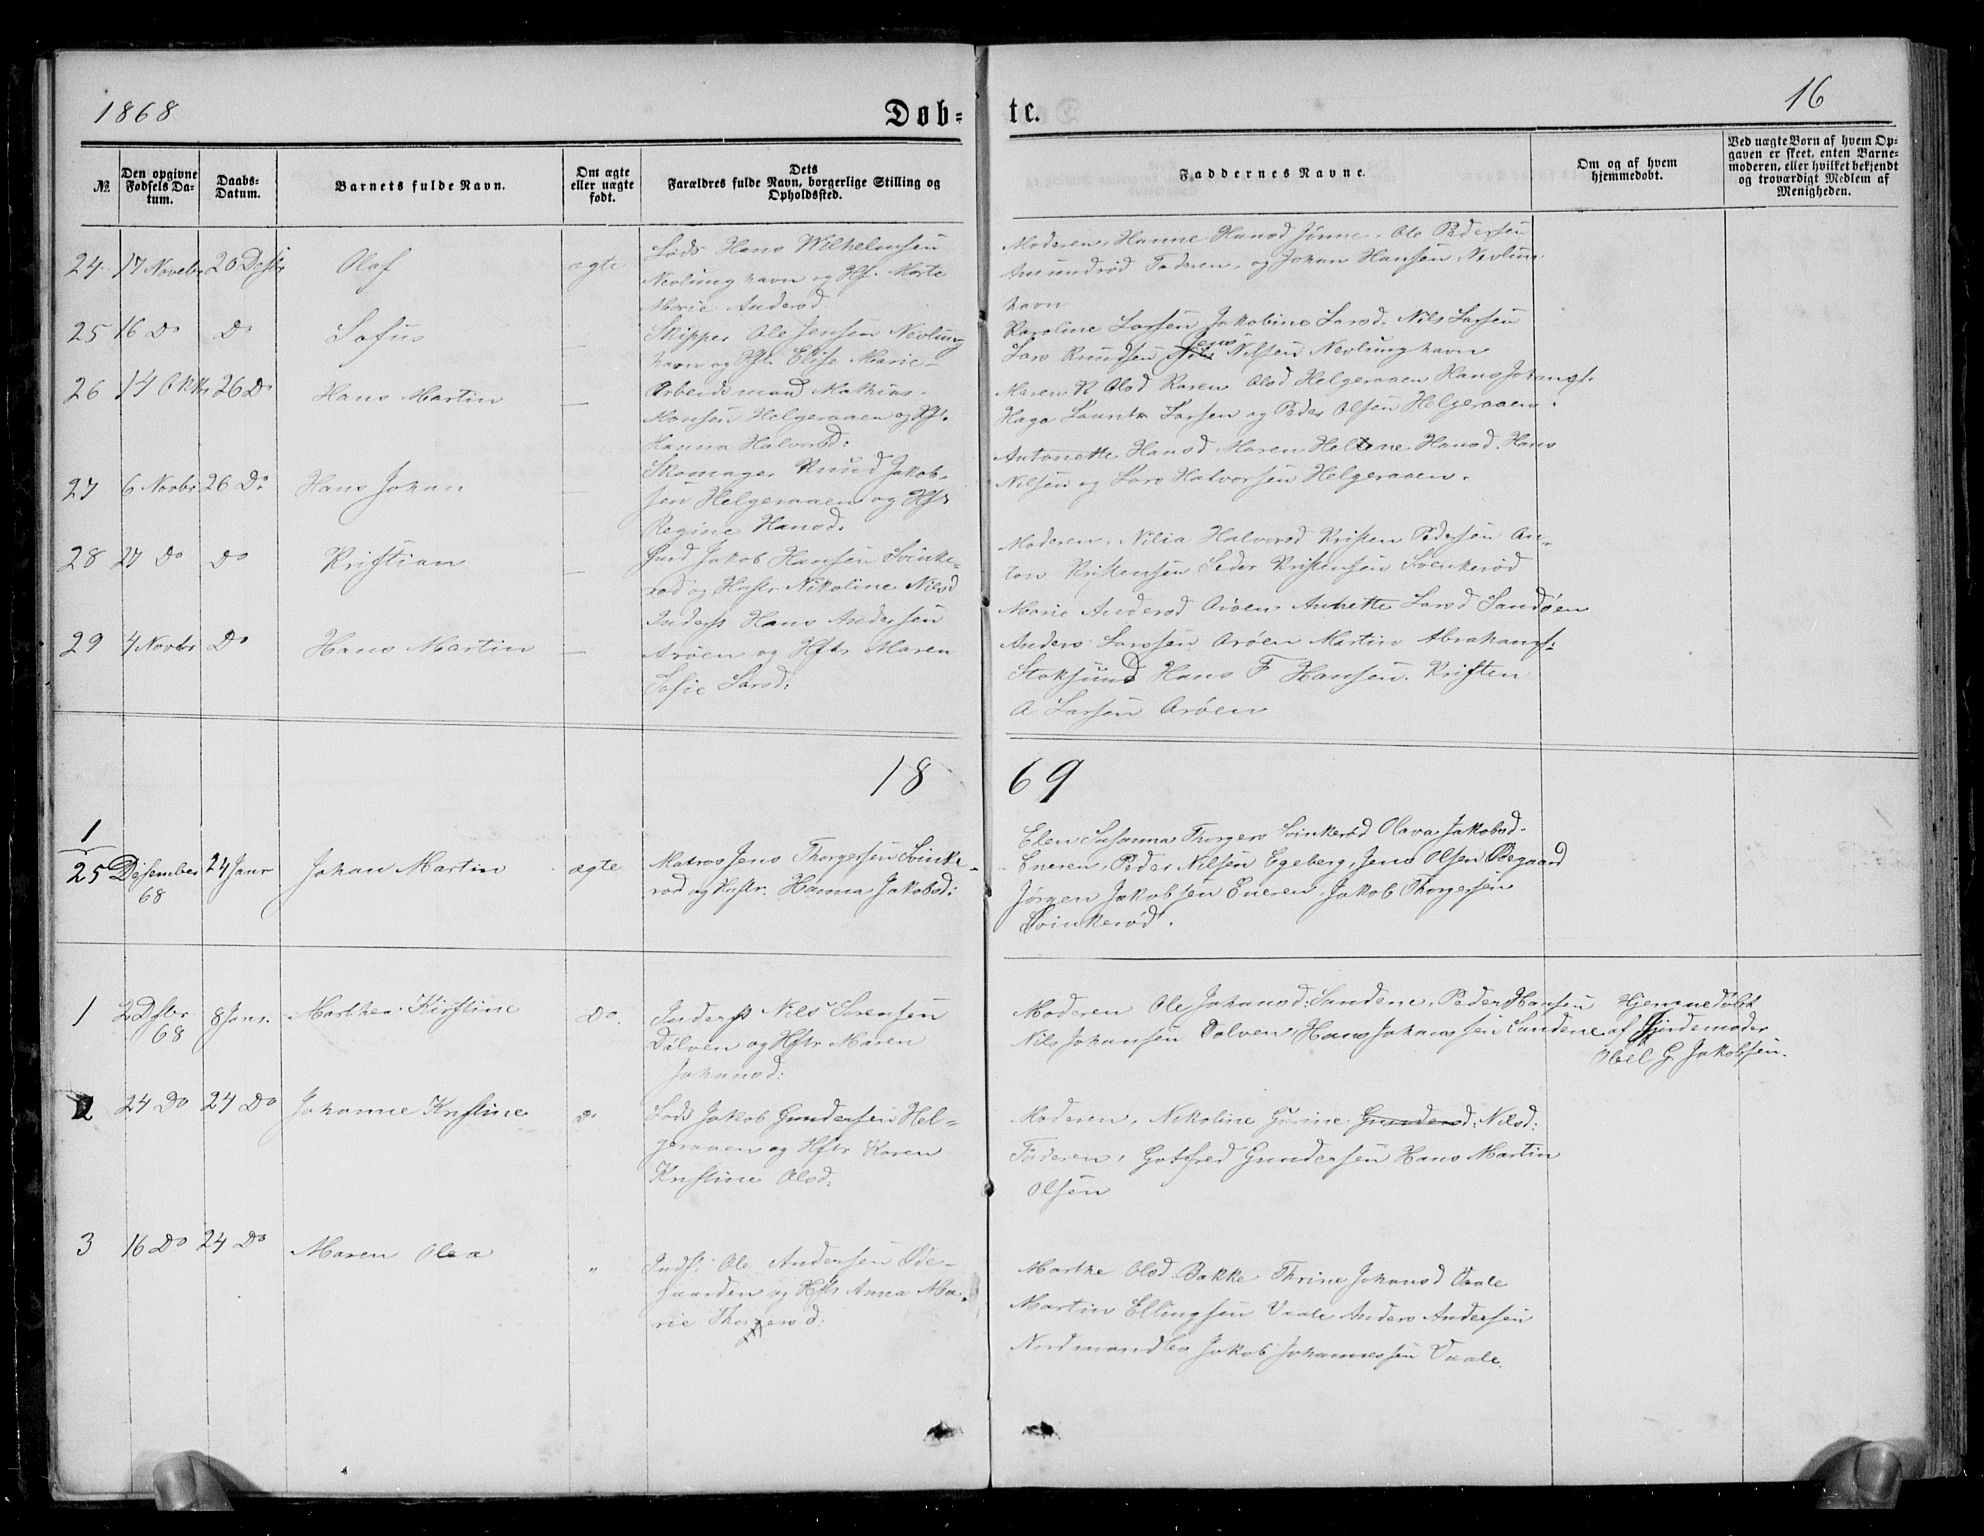 1868
Døb=
te.
16
№.
Den opgivne Fødsels Da-tum.
Daabs-Datum.
Barnets fulde Navn.
Om ægte eller uægte født.
Dets Forældres fulde Navn, borgerlige Stilling og Opholdssted.
Faddernes Navne.
Om og af hvem hjemmedøbt.
Ved uægte Børn af hvem Op-gaven er skeet, enten Barne-moderen, eller hvilket bekjendt og troværdigt Medlem af Menigheden.
24 17 Novebr 20 Desbr Olaf ægte
Lods Hans Wilhelmsen
Nevlunghavn og Hf. Marte
Marie Andersd
Moderen, Hanne Hansd Jønne, Ole Pedersen
Amundrød Faderen, og Johan Hansen Nevlun
havn
25 16 Do Do Sofus —
Skipper Ole Jensen Nevlung
havn og Hf. Elise Marie
Karoline Larsen Jakobine Larsd. Nils Larsen
Jens
Lars Knudsen Nils Nilsen Nevlunghavn
26 14 Oktbr 26 Do Hans Martin —
Arbeidsmand Mathias
Hansen Helgeraaen og Hf.
Hanna Halvorsd:
Maren K Olsd Karen Olsd Helgeraaen Hans Johansf.
Haga Larsen og Peder Olsen Helgeraaen.
27 6 Novbr 26 Do Hans Johan —
Skomager Knud Jakob-
sen Helgeraaen og Hf
Regine Hansd.
Antonette Hansd Maren Helene Hansd. Hans
Nilsen og Lars Halvorsen Helgeraaen.
28 27 Do Do Kristian —
Jakob Hansen Svinke-
rød og Hustr Nikoline Nilsd
Moderen, Nilia Halvorsd Kristen Pedersen An-
ton Kristensen Peder Kristensen Svenkerød
29 4 Novbr Do Hans Martin —
Inderst Hans Andersen
Arøen og Hstr Maren
Sofie Larsd:
Marie Andersd Arøen, Anhette Larsd Sandøen
Anders Larssen Arøen Martin Abrahamsf.
Stoksund Hans F Hansen. Kristen
A Larsen Arøen
18 69
1
25 Desember 68 24 Janr Johan Martin ægte
Matros Jens Thorgersen Svinke-
rød og Hustr. Hanna Jakobsd:
Elen Susanna Thorgers Svinkerød Olava Jakobsd.
Eneren, Peder Nilsen Egeberg, Jens Olsen Ødegaard
Jørgen Jakobsen Eneren Jakob Thorgersen
Svinkerød.
1 2 Dsbr 68 8 Janr. Marthea Kirstine Do.
Inderst Nils Sørensen
Dølven og Hstr Maren
Johansd:
Moderen Ole Johansd: Sandene, Peder Hansen
Nils Johansen Dolven, Hans Johanssen Sandene
Hjemmedøbt
af Jordemoder
G. Jakobsen.
2 24 Do 24 Do Johanne Kristine Do
Lods Jakob Gundersen Hel-
geraaen og Hstr Karen
Kristine Olsd:
Moderen, Nikoline Gurine Gundersd: Nilsd:
Faderen, Gotfred Gundersen Hans Martin
Olsen
3 16 Do 24 Do Maren Olea "
Indst: Ole Andersen Øde-
gaarden og Hstr Anna Ma-
rie Thorgersd:
Marthe Olsd Bakke Thrine Johansd Vaale
Martin Ellingsen Vaale Anders Andersen
Nordmandbo Jakob Johannessen Vaale.